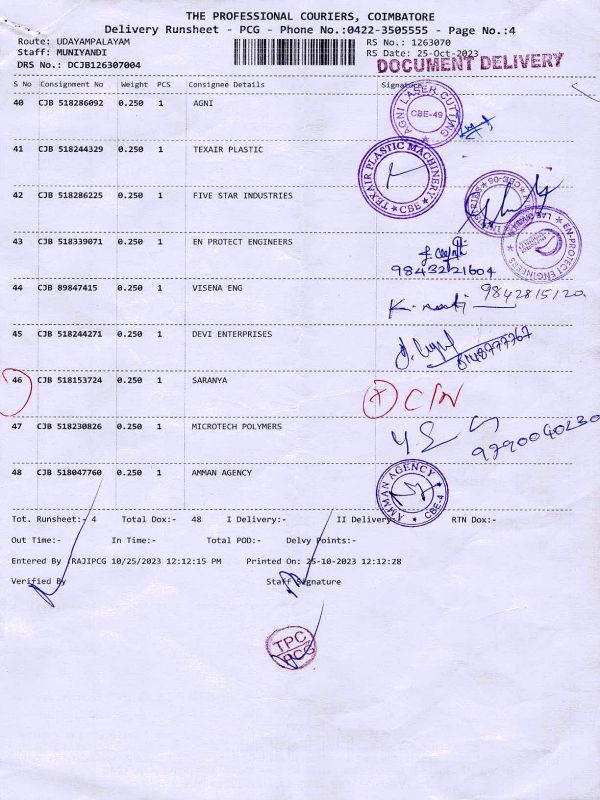 THE PROFESSIONAL COURIERS, COIMBATORE
Delivery Runsheet - PCG - Phone No.:0422-3505555 - Page No.:4
Route: UDAYAMPALAYAM RS No.: 1263070
Staff: MUNIYANDI RS Date: 25-Oct-2023
DRS No.: DCJB126307004 DOCUMENT DELIVERY
S No Consignment No Weight PCS Consignee Details Signature
40 CJB 518286092 0.250 1 AGNI
AGNI LASER CUTTING CBE-49
41 CJB 518244329 0.250 1 TEXAIR PLASTIC
TEXAIR PLASTIC MACHINERY CBE
42 CJB 518286225 0.250 1 FIVE STAR INDUSTRIES
CBE-06
43 CJB 518339071 0.250 1 EN PROTECT ENGINEERS
EN-PROTECT ENGINEERS
9843221604
44 CJB 89847415 0.250 1 VISENA ENG
45 CJB 518244271 0.250 1 DEVI ENTERPRISES
46 CJB 518153724 0.250 1 SARANYA
47 CJB 518230826 0.250 1 MICROTECH POLYMERS
9790040230
48 CJB 518047760 0.250 1 AMMAN AGENCY
AMMAN AGENCY CBE-4
Tot. Runsheet:- 4 Total Dox:- 48 I Delivery:- II Delivery:- RTN Dox:-
Out Time:- In Time:- Total POD:- Delvy Points:-
Entered By :RAJIPCG 10/25/2023 12:12:15 PM Printed On: 25-10-2023 12:12:28
Verified By Staff Signature
TPC
PCG